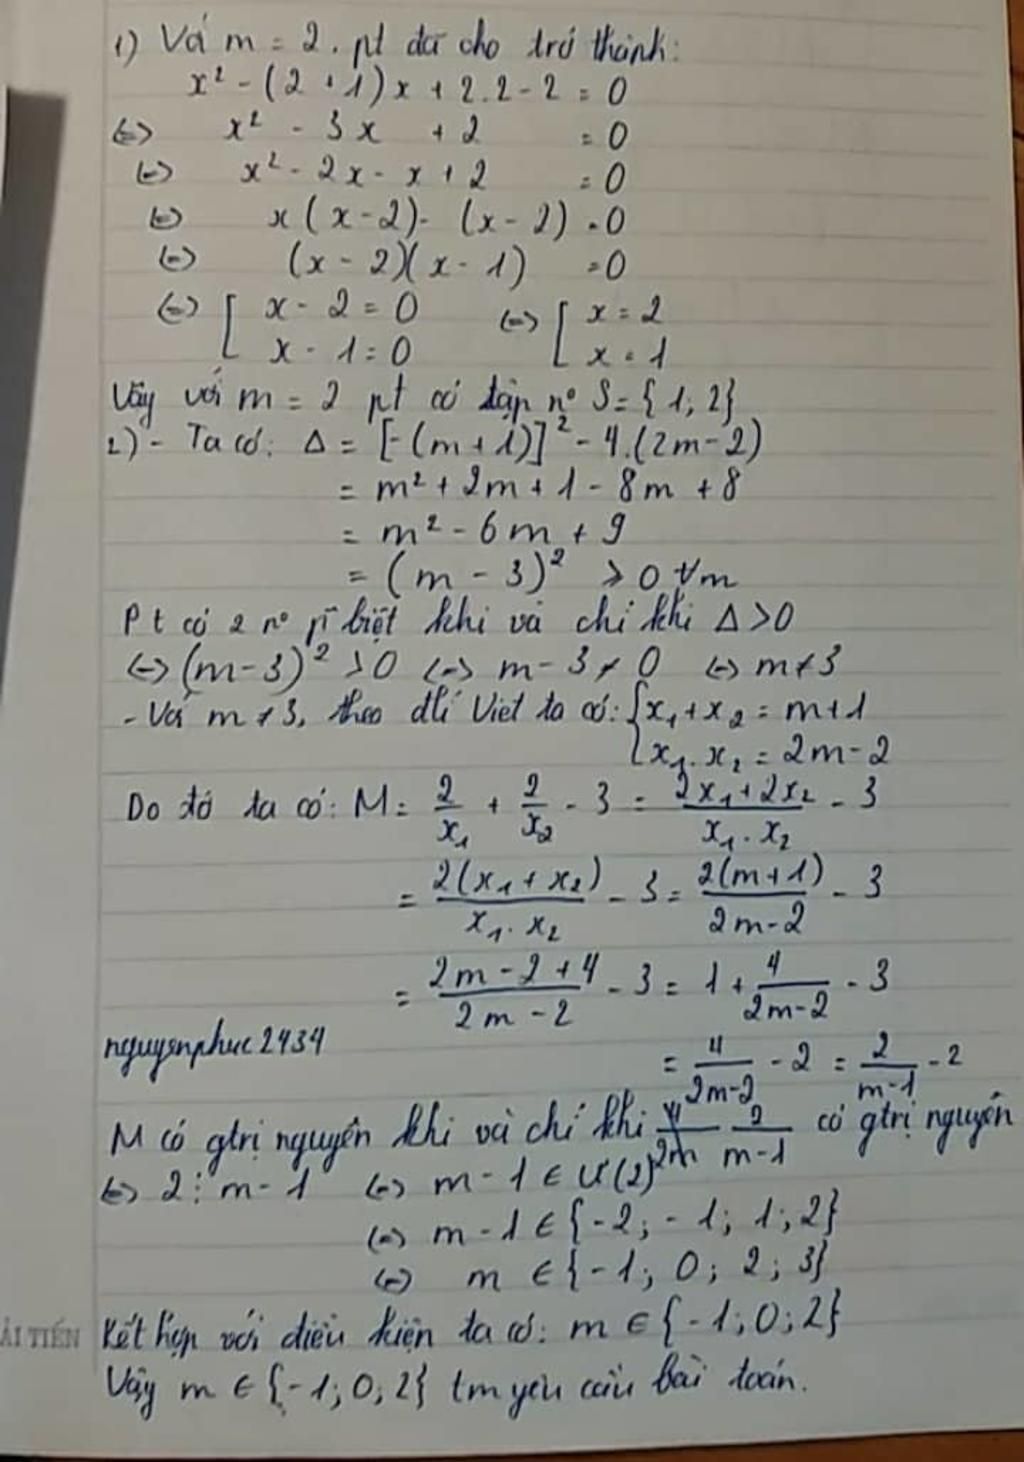 1) Với m = 2. pt đã cho trở thành:
x² - (2 + 1)x + 2.2 - 2 = 0
<=> x² - 3x + 2 = 0
<=> x² - 2x - x + 2 = 0
<=> x(x - 2) - (x - 2) = 0
<=> (x - 2)(x - 1) = 0
<=> [ x - 2 = 0 <=> [ x = 2
x - 1 = 0 x = 1
Vậy với m = 2 pt có tập nº S = {1; 2}
2) - Ta có: Δ = [-(m + 1)]² - 4.(2m - 2)
= m² + 2m + 1 - 8m + 8
= m² - 6m + 9
= (m - 3)² ≥ 0 ∀m
Pt có 2 nº pĩ biệt khi và chỉ khi Δ > 0
<=> (m - 3)² > 0 <=> m - 3 ≠ 0 <=> m ≠ 3
- Với m ≠ 3, theo đlí Viet ta có: { x₁ + x₂ = m + 1
x₁ . x₂ = 2m - 2
Do đó ta có: M = 2/x₁ + 2/x₂ - 3 = (2x₁ + 2x₂)/(x₁ . x₂) - 3
= 2(x₁ + x₂)/(x₁ . x₂) - 3 = 2(m + 1)/(2m - 2) - 3
= (2m - 2 + 4)/(2m - 2) - 3 = 1 + 4/(2m - 2) - 3
nguyenphuc2434
= 4/(2m - 2) - 2 = 2/(m - 1) - 2
M có gtrị nguyên khi và chỉ khi 2/(m - 1) có gtrị nguyên
<=> 2 ⋮ m - 1 <=> m - 1 ∈ Ư(2)
<=> m - 1 ∈ {-2; -1; 1; 2}
<=> m ∈ {-1; 0; 2; 3}
ẢI TIẾN Kết hợp với điều kiện ta có: m ∈ {-1; 0; 2}
Vậy m ∈ {-1; 0; 2} tm yêu cầu bài toán.